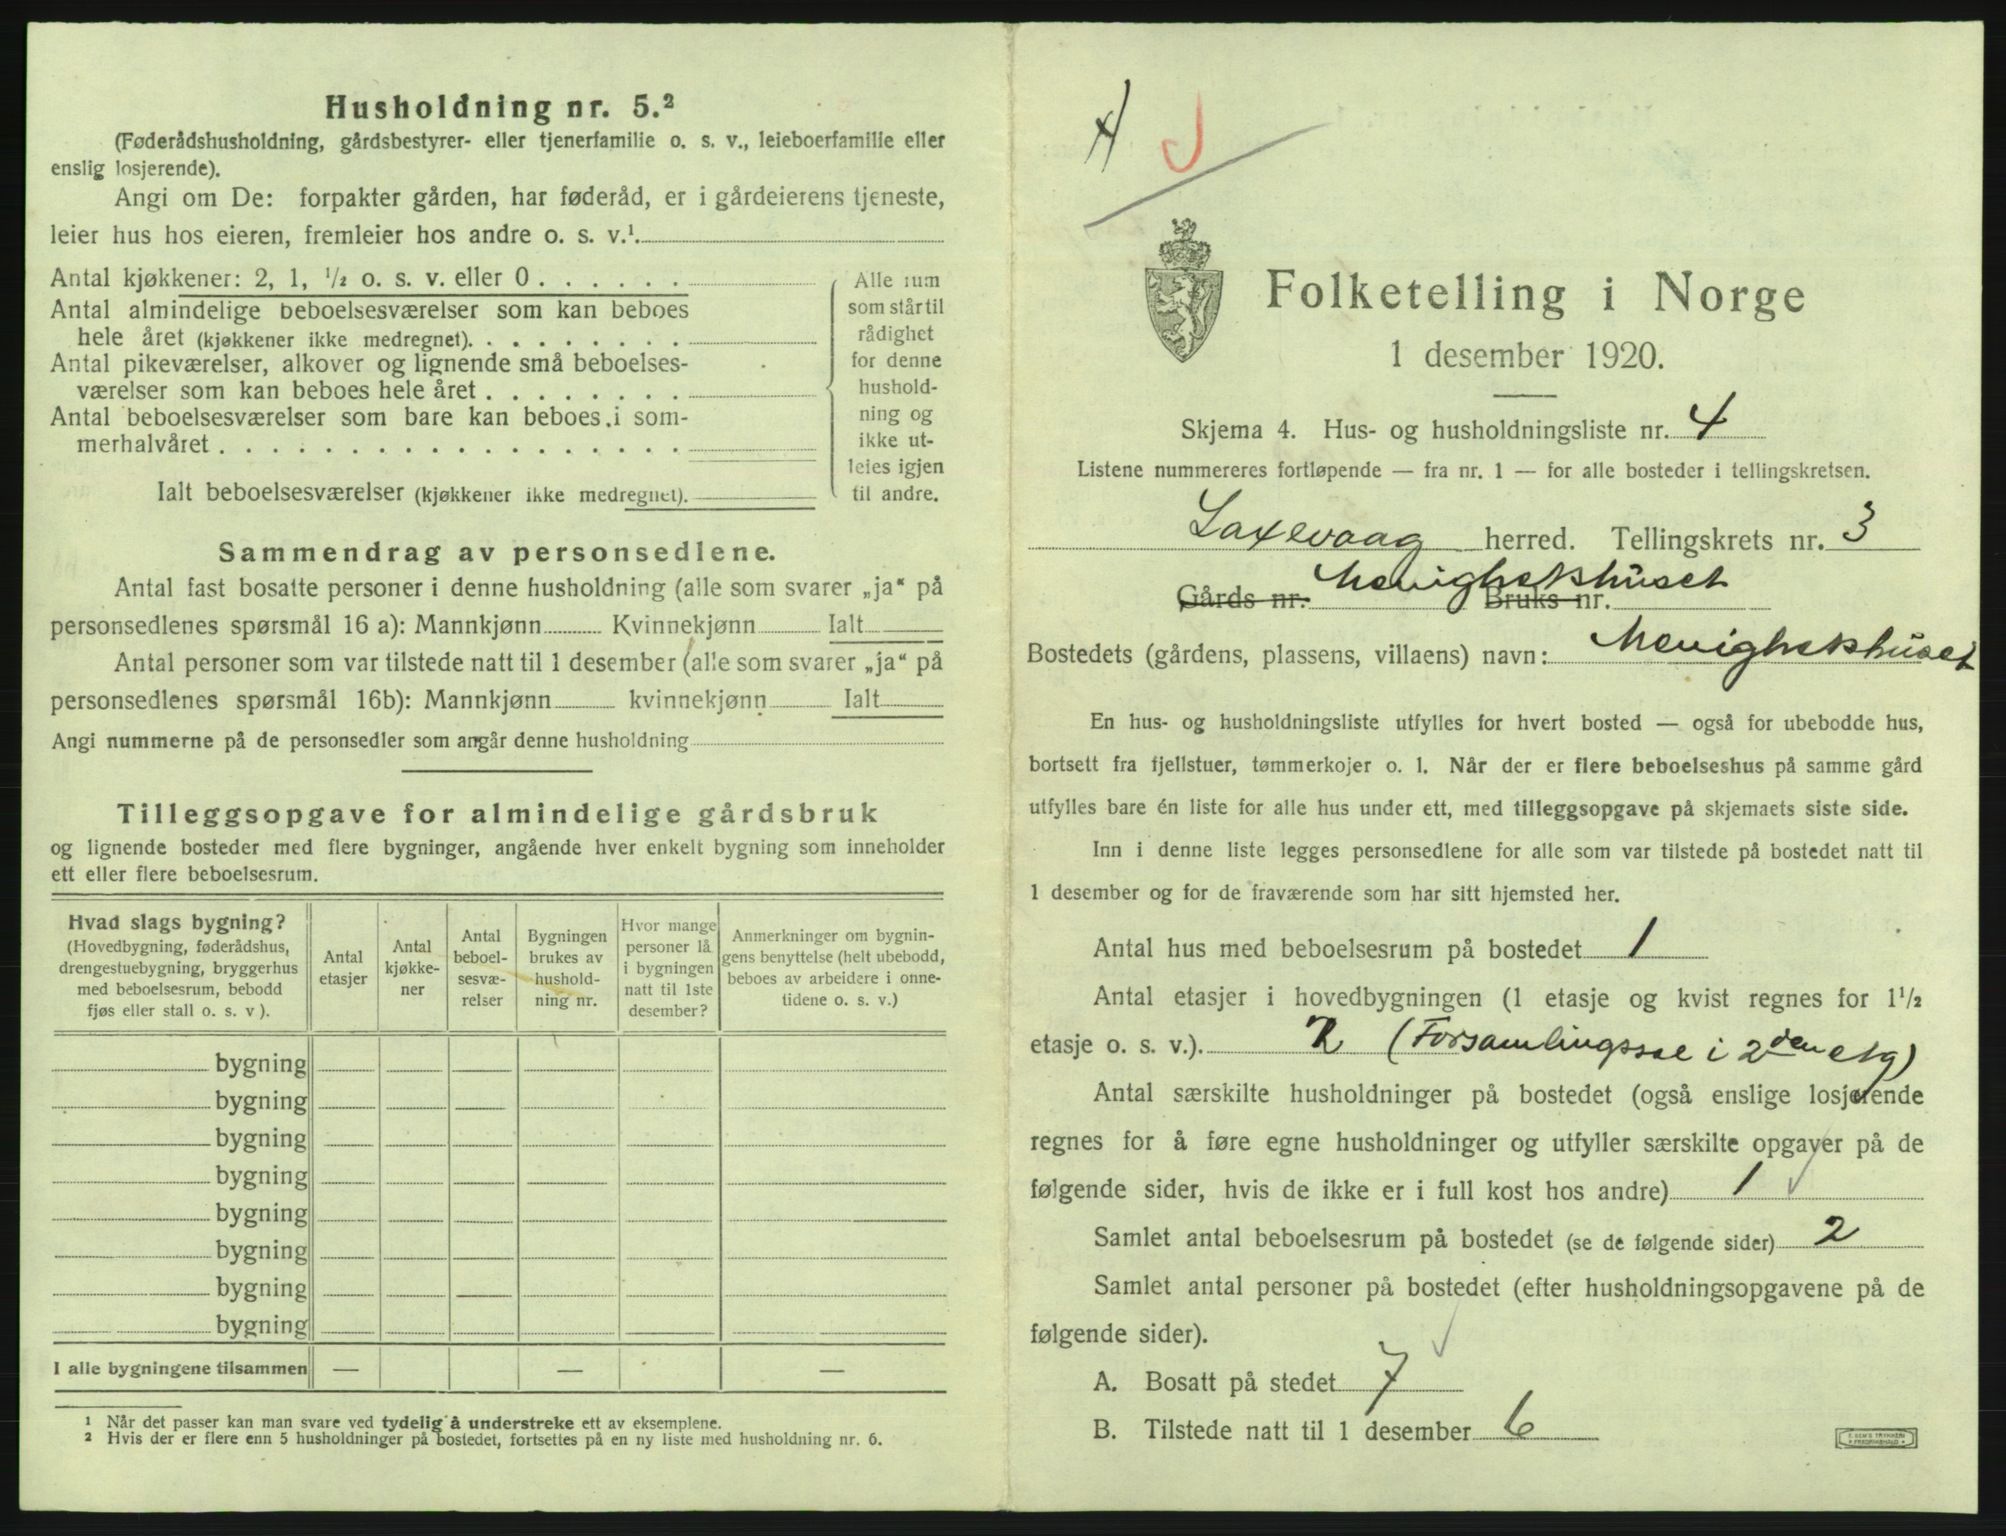 Husholdning nr. 5.²
(Føderådshusholdning, gårdsbestyrer- eller tjenerfamilie o. s. v., leieboerfamilie eller
enslig losjerende).
Angi om De: forpakter gården, har føderåd, er i gårdeierens tjeneste,
leier hus hos eieren, fremleier hos andre o. s. v.¹.
Antal kjøkkener: 2, 1, ½ o. s. v. eller 0 . . . . . .
Antal almindelige beboelsesværelser som kan beboes
hele året (kjøkkener ikke medregnet). . . . . . . . .
Antal pikeværelser, alkover og lignende små beboelses-
værelser som kan beboes hele året . . . . . . . .
Antal beboelsesværelser som bare kan beboes i som-
merhalvåret . . . . . . . . . . . . . . . . . .
Ialt beboelsesværelser (kjøkkener ikke medregnet).
Alle rum
som står til
rådighet
for denne
hushold-
ning og
ikke ut-
leies igjen
til andre.
Sammendrag av personsedlene.
Antal fast bosatte personer i denne husholdning (alle som svarer „ja“ på
personsedlenes spørsmål 16 a): Mannkjønn Kvinnekjønn Ialt
Antal personer som var tilstede natt til 1 desember (alle som svarer „ja“ på
personsedlenes spørsmål 16b): Mannkjønn kvinnekjønn Ialt
Angi nummerne på de personsedler som angår denne husholdning
Tilleggsopgave for almindelige gårdsbruk
og lignende bosteder med flere bygninger, angående hver enkelt bygning som inneholder
ett eller flere beboelsesrum.
Hvad slags bygning?
(Hovedbygning, føderådshus,
drengestuebygning, bryggerhus
med beboelsesrum, bebodd
fjøs eller stall o. s. v ).
Antal
etasjer
Antal
kjøkke-
ner
Antal
beboel-
sesvæ-
relser
Bygningen
brukes av
hushold-
ning nr.
Hvor mange
personer lå
i bygningen
natt til 1ste
desember?
Anmerkninger om bygnin-
gens benyttelse (helt ubebodd,
beboes av arbeidere i onne-
tidene o. s. v.)
bygning
bygning
bygning
bygning
bygning
bygning
bygning
bygning
I alle bygningene tilsammen — — —
¹ Når det passer kan man svare ved tydelig å understreke ett av eksemplene.
² Hvis der er flere enn 5 husholdninger på bostedet, fortsettes på en ny liste med husholdning nr. 6.
Folketelling i Norge
1 desember 1920.
Skjema 4. Hus- og husholdningsliste nr. 4
Listene nummereres fortløpende — fra nr. 1 — for alle bosteder i tellingskretsen.
Laxevaag herred. Tellingskrets nr. 3
Gårds nr. Menighetshuset Bruks nr.
Bostedets (gårdens, plassens, villaens) navn: Menighetshuset
En hus- og husholdningsliste utfylles for hvert bosted — også for ubebodde hus,
bortsett fra fjellstuer, tømmerkojer o. l. Når der er flere beboelseshus på samme gård
utfylles bare én liste for alle hus under ett, med tilleggsopgave på skjemaets siste side.
Inn i denne liste legges personsedlene for alle som var tilstede på bostedet natt til
1 desember og for de fraværende som har sitt hjemsted her.
Antal hus med beboelsesrum på bostedet 1
Antal etasjer i hovedbygningen (1 etasje og kvist regnes for 1½
etasje o. s. v.). 2 (Forsamlingssal i 2den etg)
Antal særskilte husholdninger på bostedet (også enslige losjerende
regnes for å føre egne husholdninger og utfyller særskilte opgaver på de
følgende sider, hvis de ikke er i full kost hos andre) 1
Samlet antal beboelsesrum på bostedet (se de følgende sider) 2
Samlet antal personer på bostedet (efter husholdningsopgavene på de
følgende sider).
A. Bosatt på stedet 7
B. Tilstede natt til 1 desember 6